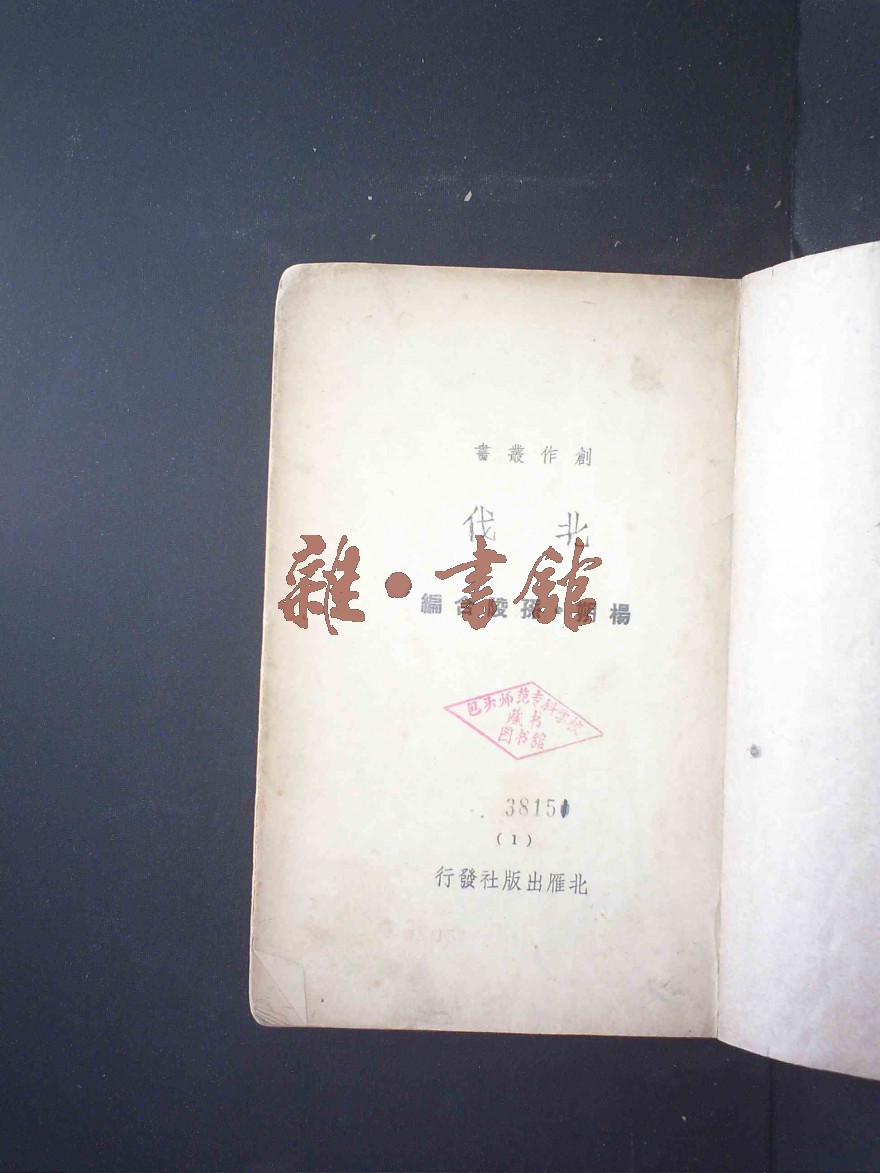 創作叢書
北伐
雜·書館
楊朔·孫陵合編
包头师范专科学校
藏书
图书館
3815
(1)
北雁出版社發行